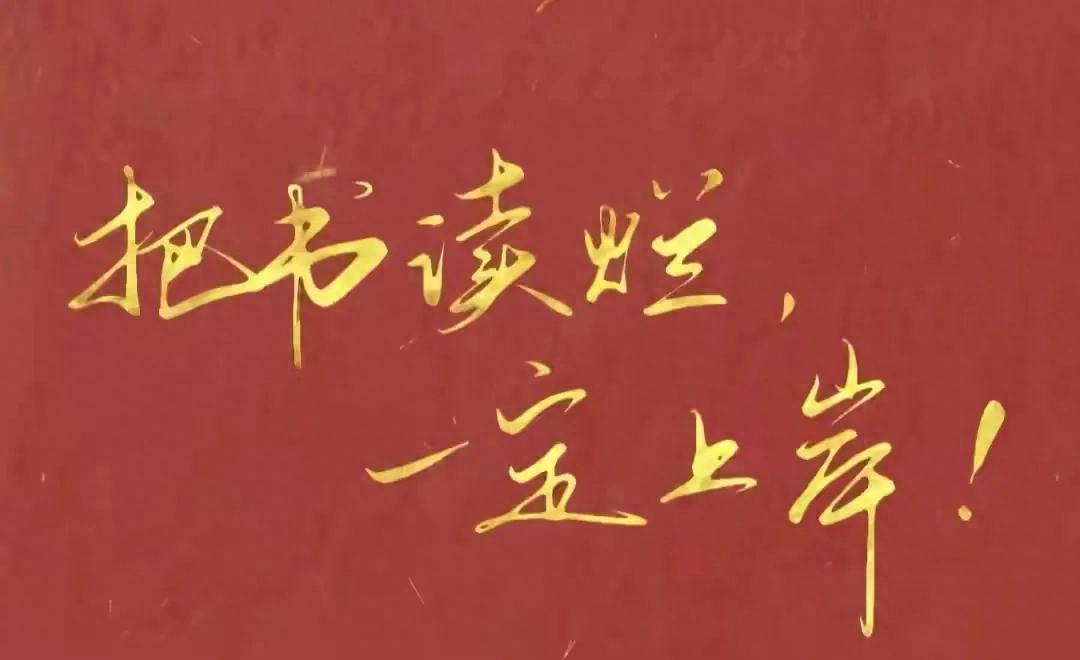 把书读烂,
一定上岸!